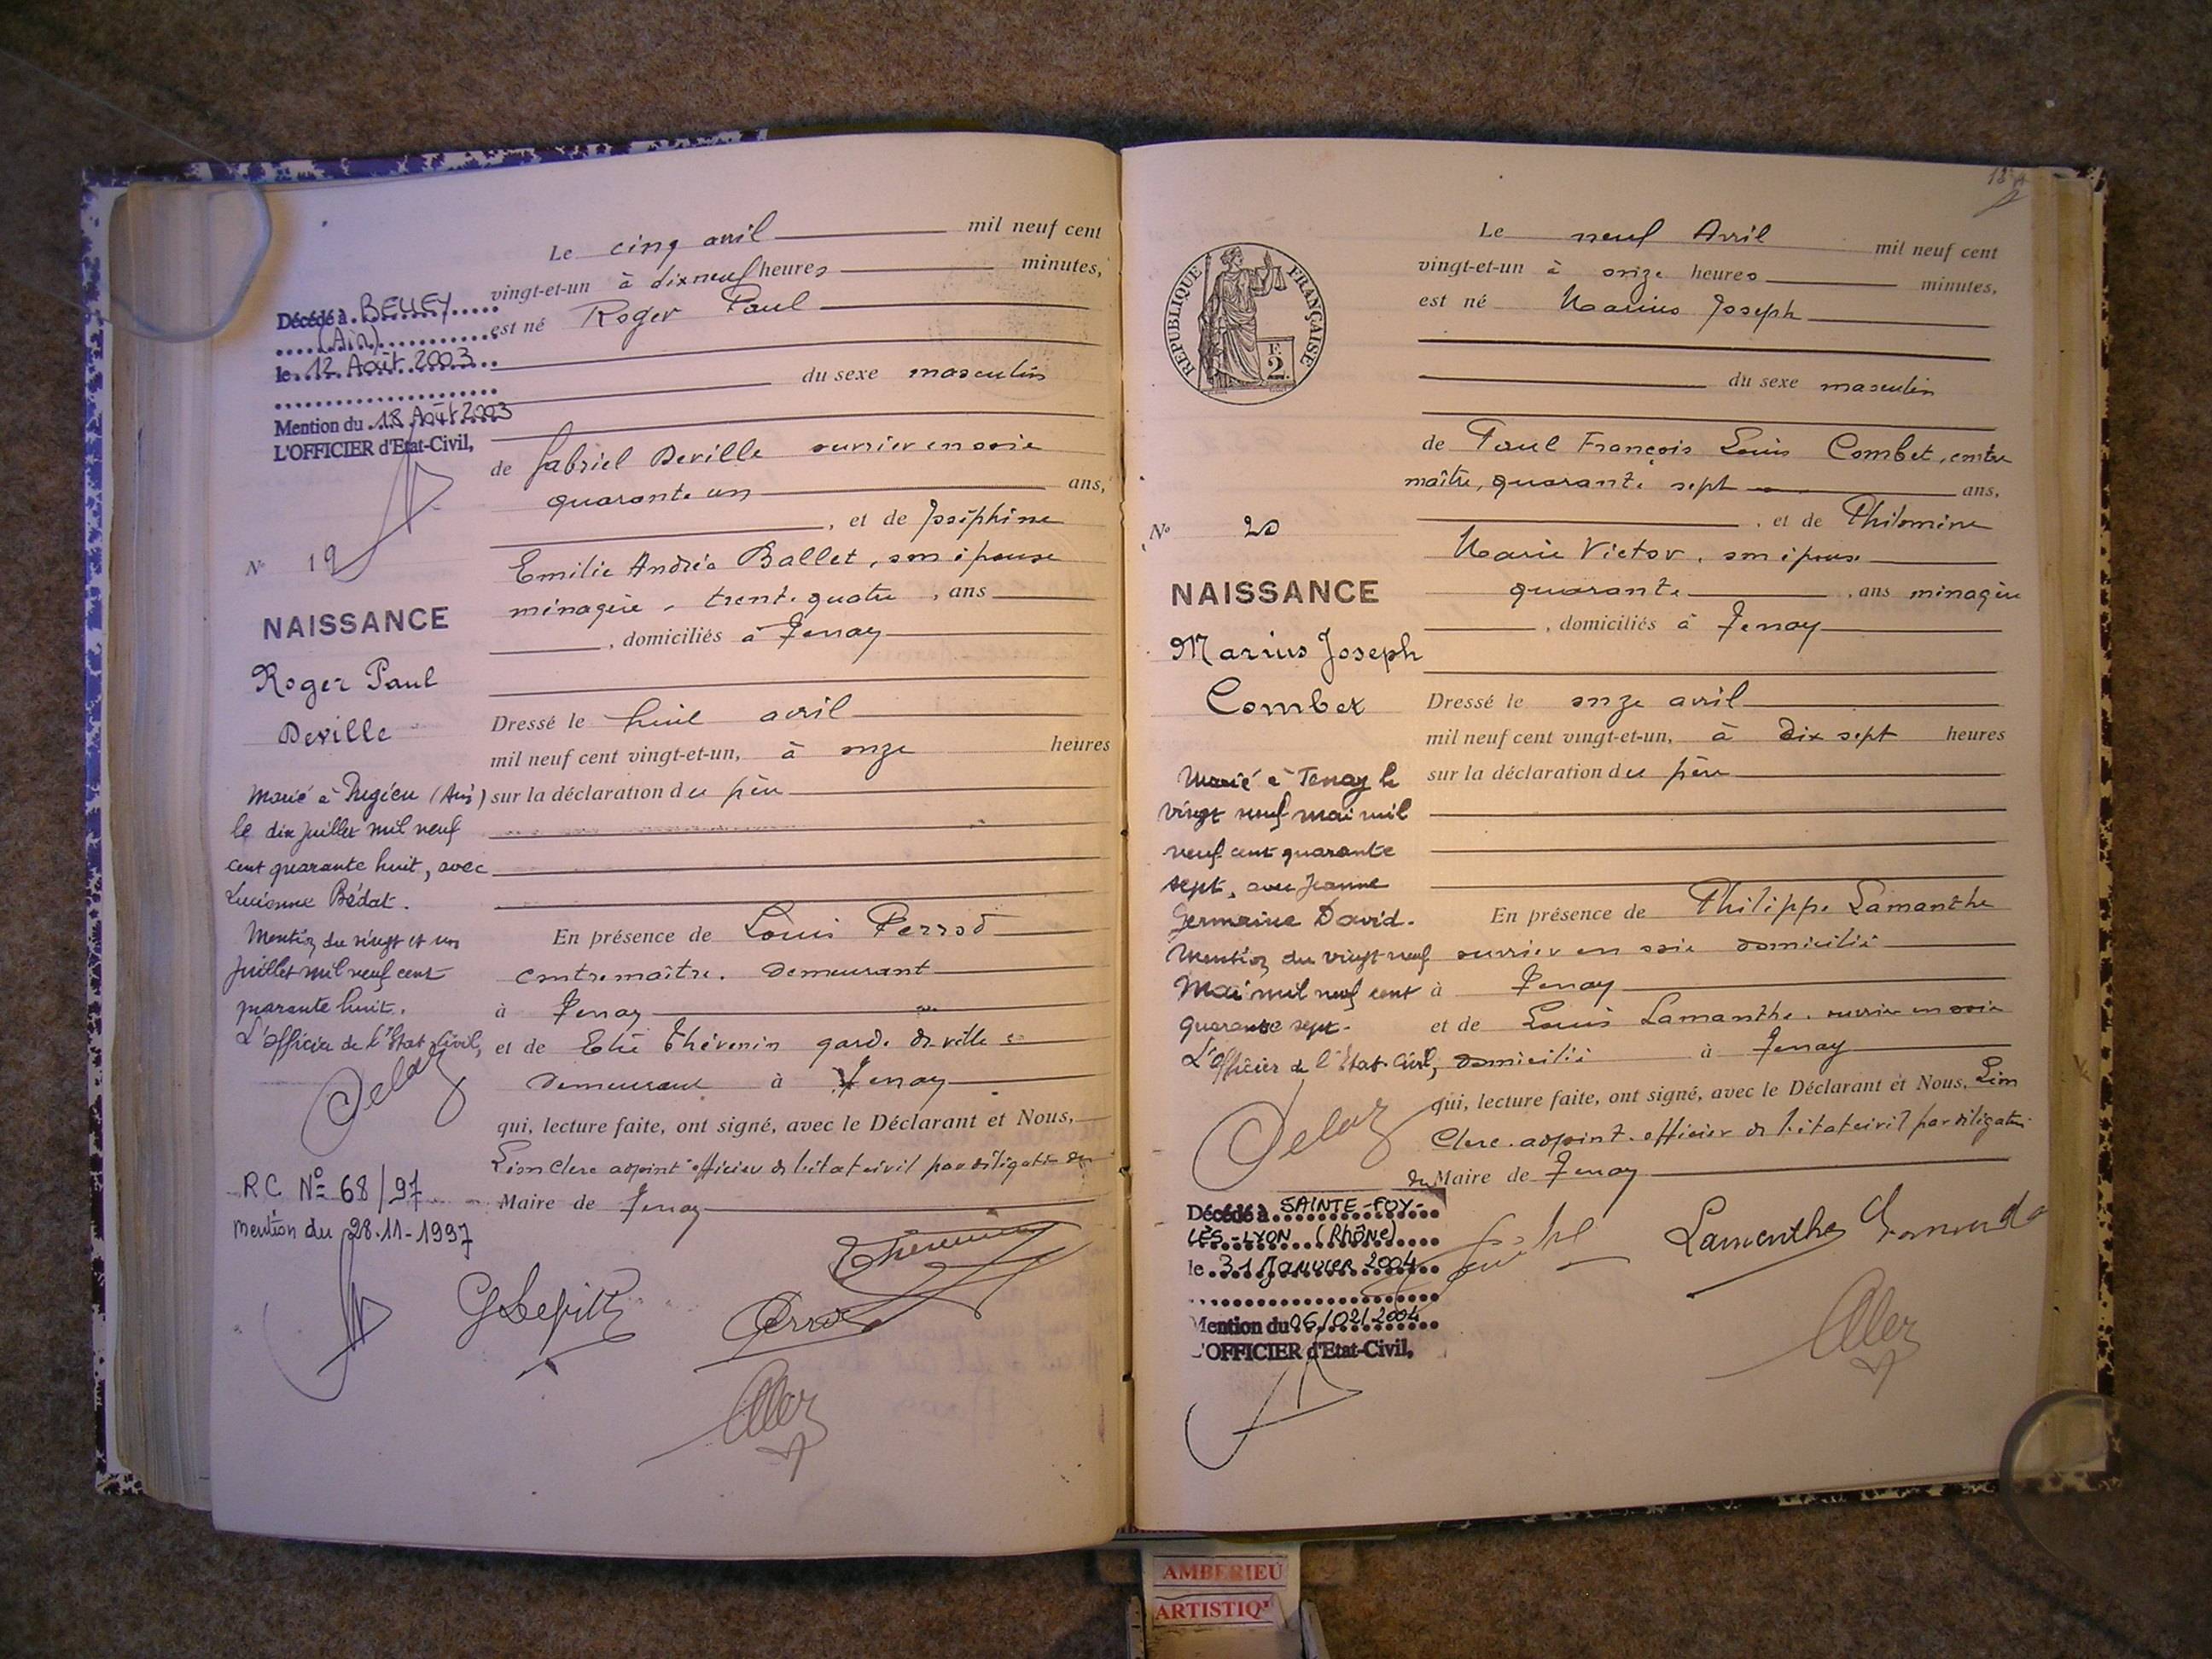 Le cinq avril mil neuf cent
vingt-et-un à dix neuf heures minutes,
est né Roger Paul
du sexe masculin
de Gabriel Deville ouvrier en soie
quarante un ans,
, et de Joséphine
Emilie Andréa Ballet, son épouse
ménagère, trente quatre , ans
, domiciliés à Tenay
Dressé le huit avril
mil neuf cent vingt-et-un, à onze heures
sur la déclaration du père
En présence de Louis Perrod
contremaître. demeurant
à Tenay
et de Thévenin garde de ville
demeurant à Tenay
qui, lecture faite, ont signé, avec le Déclarant et Nous,
Léon Clerc adjoint officier de l'état civil par délégation du
Maire de Tenay
Décédé à BELLEY
(Ain)
le 12 Août 2003
Mention du 18 Août 2003
L'OFFICIER d'Etat-Civil,
N° 19
NAISSANCE
Roger Paul
Deville
Marié à (Ain)
le dix juillet mil neuf
cent quarante huit, avec
Lucienne Bédat.
Mention du vingt et un
juillet mil neuf cent
quarante huit.
L'officier de l'Etat Civil,
Delaz
R C N° 68/97
mention du 28.11-1997
Thevenin
Perrod
Le neuf Avril mil neuf cent
vingt-et-un à onze heures minutes,
est né Marius Joseph
du sexe masculin
de Paul François Louis Combet, contre
maître, quarante sept ans,
, et de Philomène
Marie Victor, son épouse
quarante , ans ménagère
, domiciliés à Tenay
Dressé le onze avril
mil neuf cent vingt-et-un, à dix sept heures
sur la déclaration du père
En présence de Philippe Lamanthe
ouvrier en soie domicilié
à Tenay
et de Louis Lamanthe. ouvrier en soie
domicilié à Tenay
qui, lecture faite, ont signé, avec le Déclarant et Nous, Léon
Clerc. adjoint. officier de l'état civil par délégation
du Maire de Tenay
REPUBLIQUE FRANÇAISE
F.
2.
N° 20
NAISSANCE
Marius Joseph
Combet
Marié à Tenay le
vingt neuf mai mil
neuf cent quarante
sept, avec Jeanne
Germaine David.
Mention du vingt neuf
Mai mil neuf cent
quarante sept.
L'Officier de l'Etat Civil,
Delaz
Décédé à SAINTE-FOY-
LÈS-LYON (Rhône)
le 31 Janvier 2004
Mention du 06/02/2004
L'OFFICIER d'Etat-Civil,
Lamenthe
AMBERIEU
ARTISTIQ